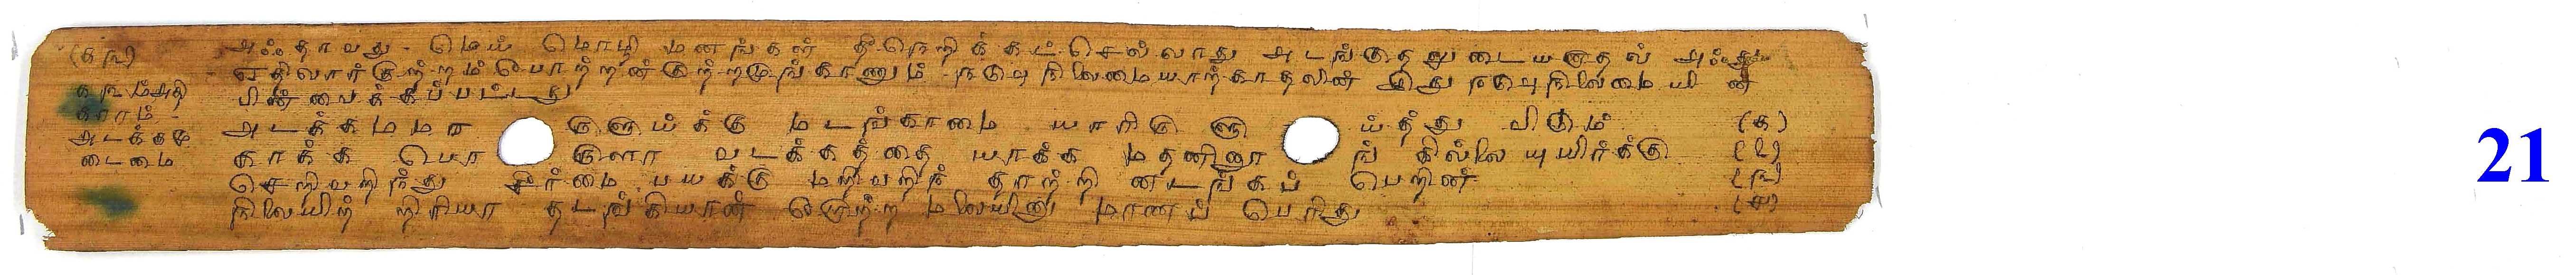 (கங) அஃதாவது - மெய் மொழி மனங்கள் தீநெறிக்கட் செல்லாது அடங்குதலுடையனாதல் அஃது
எதிலார் குற்றம் போற்றன் குற்றமுங் காணும் நடுவு நிலைமையாற்காதலின் இது நடுவுநிலைமையின்
பின் வைக்கப்பட்டது
கங ம் அதி
காரம் -
அடக்கமு
டைமை
அடக்கமமரருளுய்க்கு மடங்காமை யாரிருளுய்த்து விடும் (க)
காக்க பொருளா வடக்கத்தை யாக்க மதனினூங் கில்லை யுயிர்க்கு (உ)
செறிவறிந்து சீர்மை பயக்கு மறிவறிந் தாற்றி னடங்கப் பெறின் (ங)
நிலையிற் றிரியா தடங்கியான் றோற்ற மலையினு மாணப் பெரிது (ச)
21